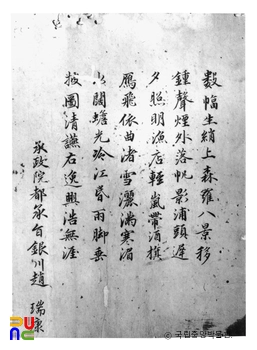 數幅生綃上森羅八景移
鍾聲煙外落帆影浦頭遲
夕照明漁店輕嵐帶酒旗
鴈飛依曲渚雪灑滿寒湄
闊蟾光冷江昏雨脚垂
披圖清讌右逸興浩無涯
承政院都承旨銀川趙 瑞康
국립중앙박물관